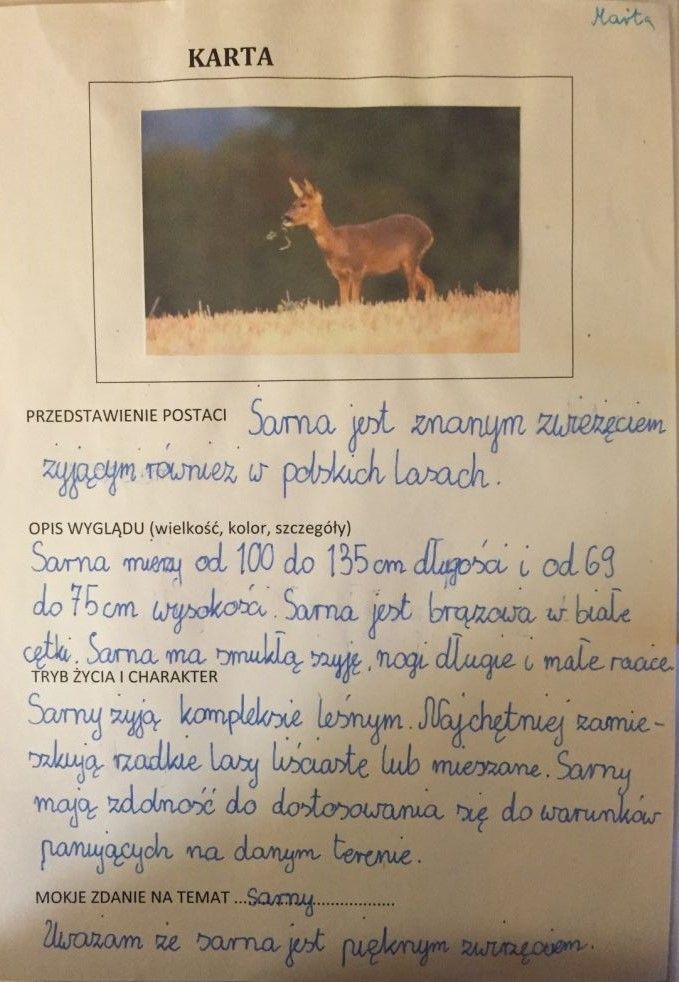 Marta
KARTA
PRZEDSTAWIENIE POSTACI Sarna jest znanym zwieżęciem
żyjącym również w polskich lasach.
OPIS WYGLĄDU (wielkość, kolor, szczegóły)
Sarna mierzy od 100 do 135 cm długości i od 69
do 75 cm wysokości. Sarna jest brązowa w białe
cętki. Sarna ma smukłą szyję, nogi długie i małe racice
TRYB ŻYCIA I CHARAKTER
Sarny żyją kompleksie leśnym. Najchętniej zamie-
szkują rzadkie lasy liściaste lub mieszane. Sarny
mają zdolność do dostosowania się do warunków
panujących na danym terenie.
MOKJE ZDANIE NA TEMAT ...Sarny...................
Uważam że sarna jest pięknym zwirzęciem.